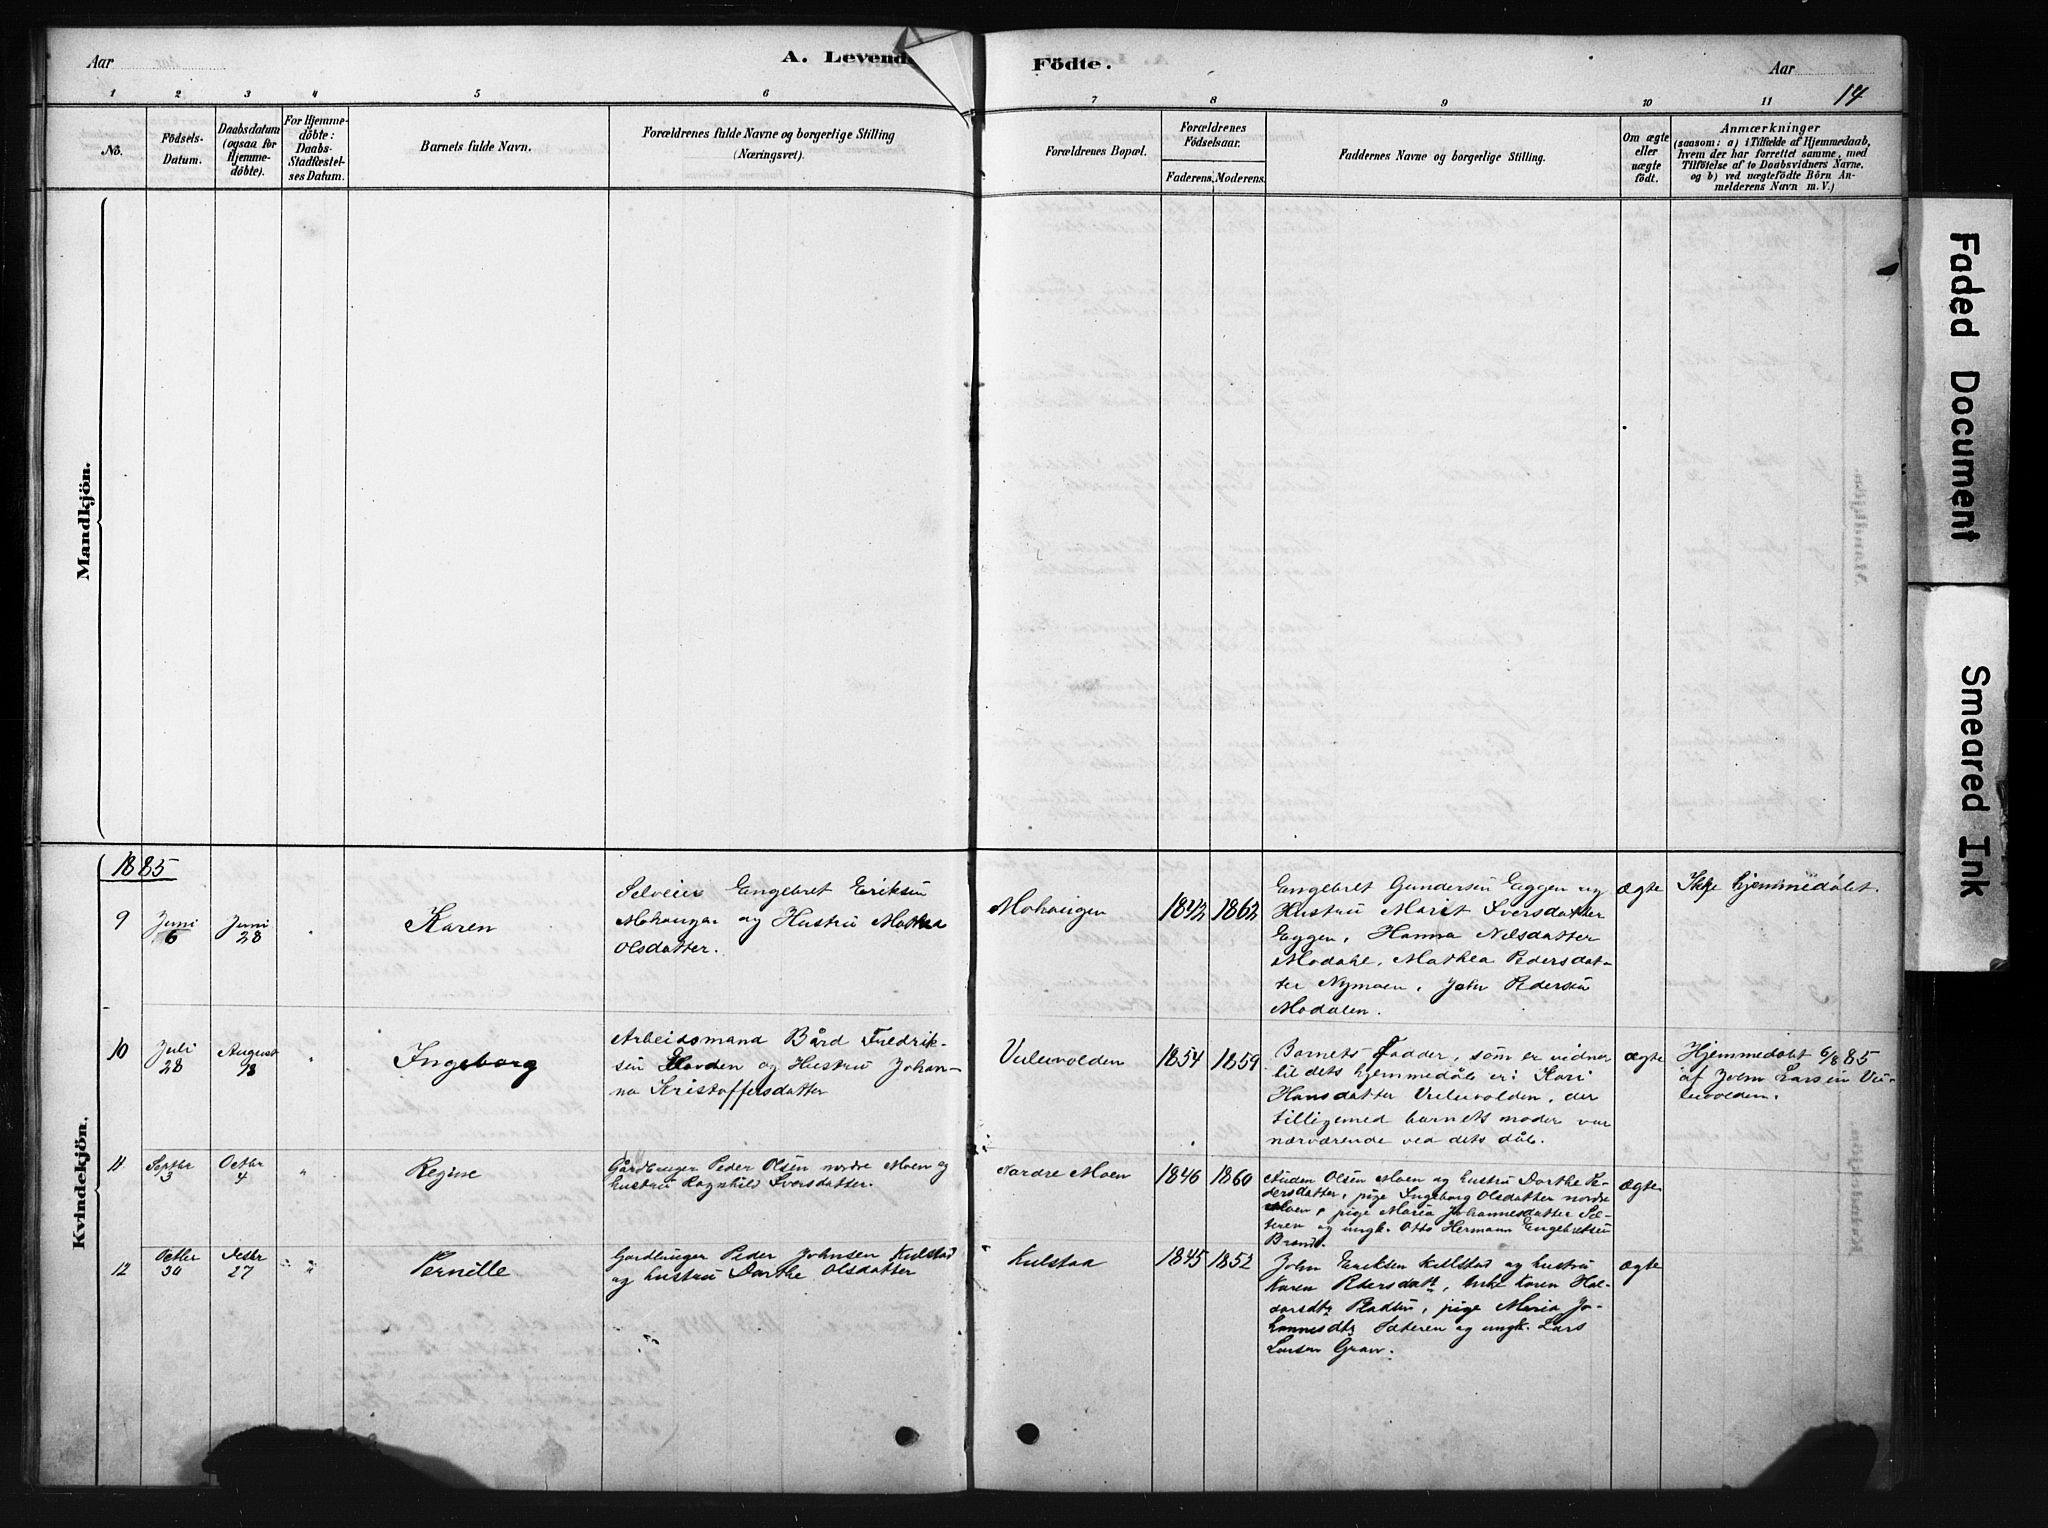 Aar
A. Levende
Födte.
Aar
14
1 2 3 4 5 6 7 8 9 10 11
No.
Födsels-
Datum.
Daabsdatum
(ogsaa for
Hjemme-
döbte).
For Hjemme-
döbte:
Daabs-
Stadfæstel-
ses Datum.
Barnets fulde Navn.
Forældrenes fulde Navne og borgerlige Stilling
(Næringsvei).
Forældrenes Bopæl.
Forældrenes
Födselsaar.
Faderens. Moderens.
Faddernes Navne og borgerlige Stilling.
Om ægte
eller
uægte
födt.
Anmærkninger
(saasom: a) i Tilfælde af Hjemmedaab,
hvem der har forrettet samme, med
Tilföielse af to Daabsvidners Navne.
og b) ved uægtefödte Börn An-
melderens Navn m. V.)
Mandkjön.
Kvindekjön.
1885
9
Juni
6
Juni
28
"
Karen
Selveier Engebret Eriksen
Mohaugen og Hustru Mathea
Olsdatter.
Mohaugen
1842 1862
Engebret Gundersen Eggen og
Hustru Marit Iversdatter
Eggen, Hanna Nilsdatter
Modahl, Mathea Pedersdat-
ter Nymoen, John Pedersen
Modalen.
ægte
Ikke hjemmedøbt.
10
Juli
28
August
8
"
Ingeborg
Arbeidsmand Bård Fredrik-
sen Hovden og Hustru Johan-
na Kristoffersdatter
Vuluvolden
1854 1859
Barnets Fadder, som er vidner
til dets hjemmedåb er: Kari
Hansdatter Vuluvolden, der
tilligemed barnets moder var
nærværende ved dets dåb.
ægte
Hjemmedøbt 6/8 85
af John Larsen Vu-
luvolden.
11
Septbr
3
Octbr
4
"
Regine
Gårdbruger Peder Olsen nordre Moen og
hustru Ragnhild Iversdatter.
Nordre Moen
1846 1860
Auden Olsen Moen og hustru Dorthe Pe-
dersdatter, pige Ingeborg Olsdatter nordre
Moen, pige Maria Johannesdatter Sæ-
teren og ungk. Otto Hermann Engebretsen
Brand.
ægte
12
Octbr
30
Decbr
27
"
Pernille
Gardbruger Peder Johnsen Kulstad
og hustru Dorthe Olsdatter
Kulstaa
1845 1852
John Eriksen Kulstad og hustru
Karen Pedersdatt, Enke Karen Hal-
vorsdtr Pladsen, pige Maria Jo-
hannesdtr Sæteren og ungk. Lars
Larsen Grav.
ægte
Faded Document
Smeared Ink